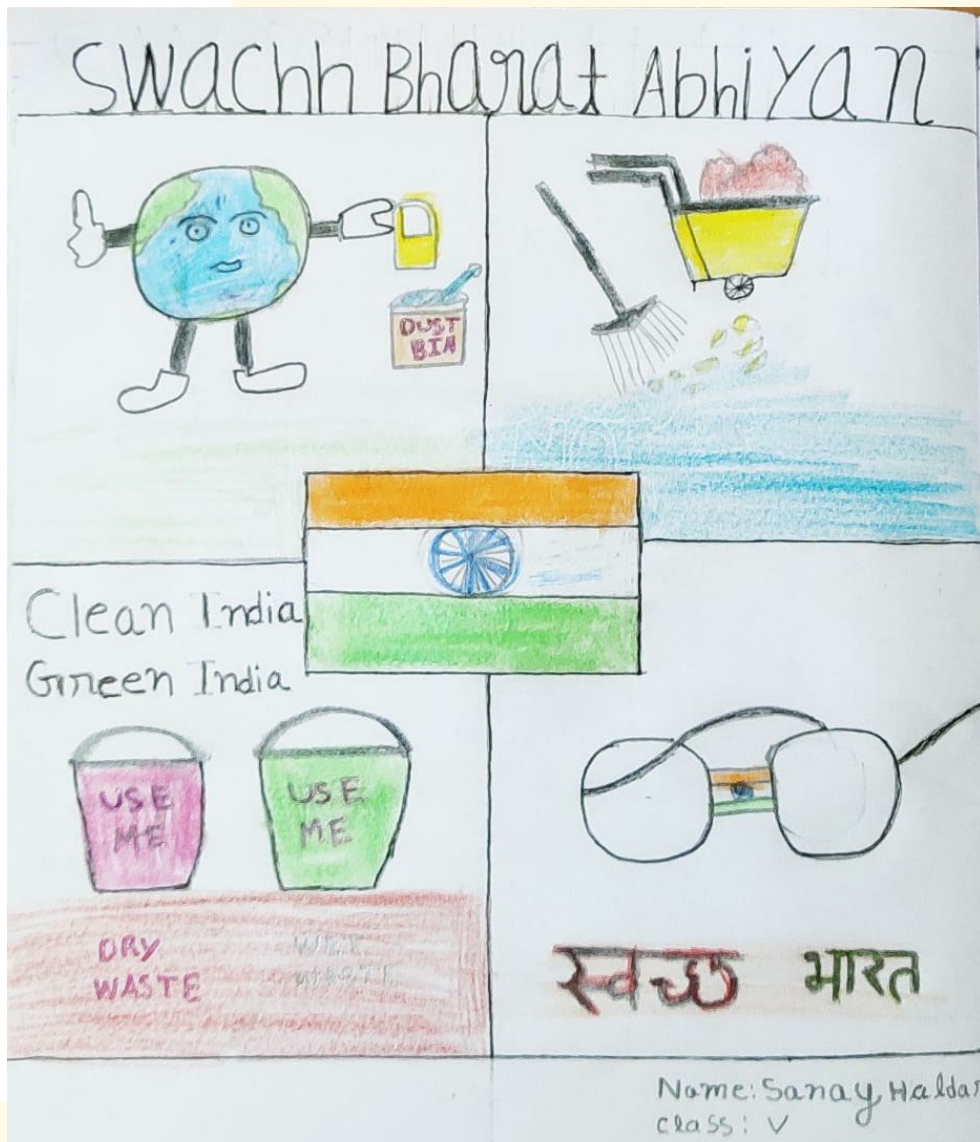 Swachh Bharat Abhiyan
DUST
BIN
Clean India
Green India
USE
ME
USE
ME
DRY
WASTE
WET
WASTE
स्वच्छ भारत
Name: Sanay Haldar
Class: V